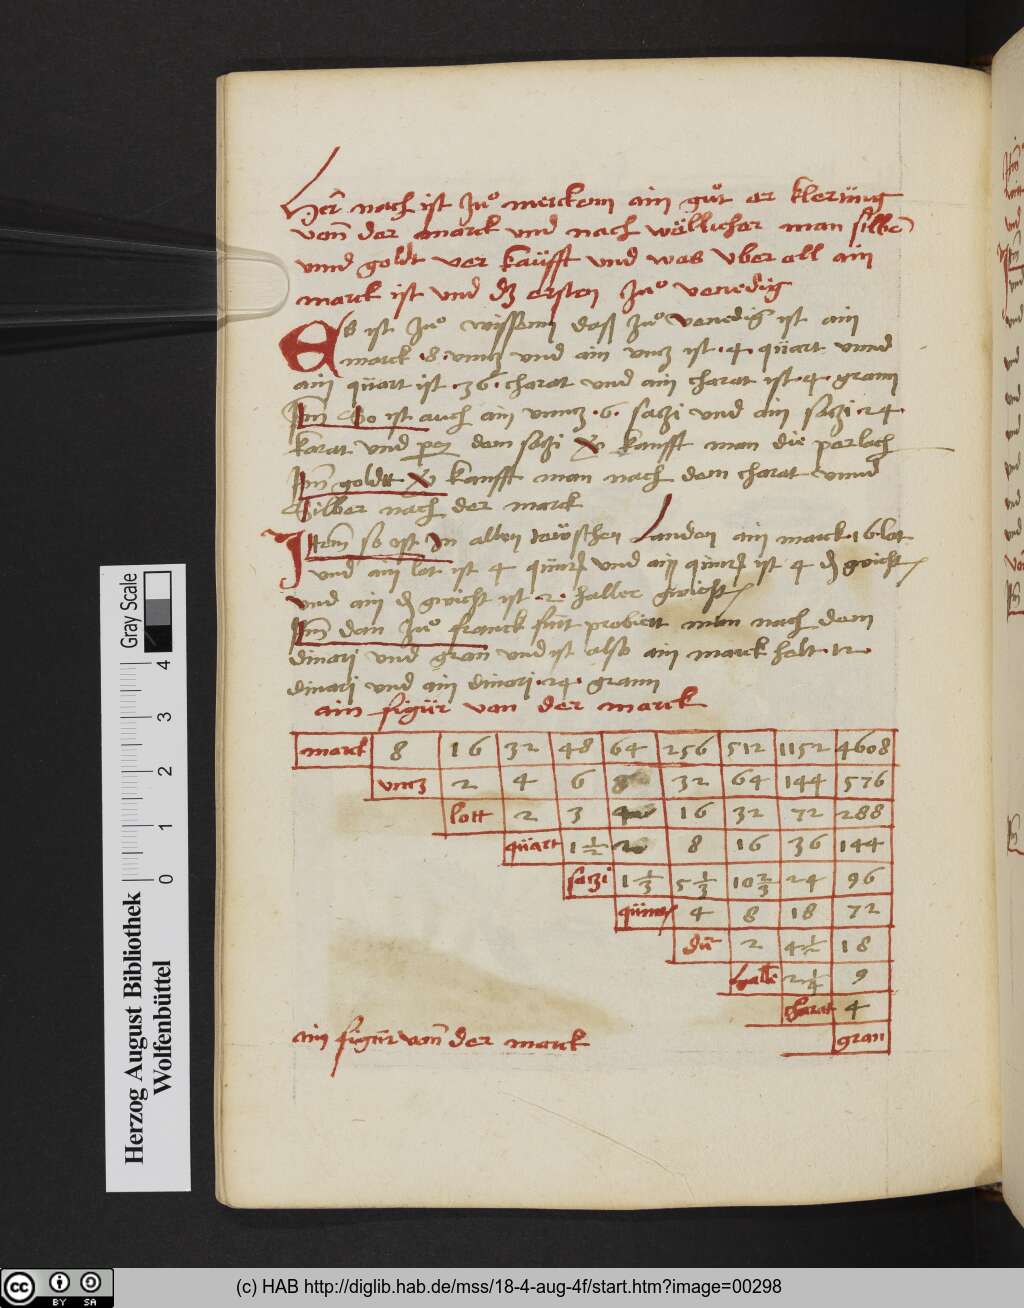 Her nach ist zuo mercken ain guot er klerüng
vonn der marck und nach wöllicher man silber
vnnd goldt ver kaüfft und was vber all ain
marck ist und dz ersten zuo venedig
Es ist zuo wissenn dass zuo venedig ist ain
marck .8. vnntz und ain vntz ist .4. qüart vnnd
ain qüart ist .36. charat und ain charat ist .4. grann
Itm So ist auch ain vnntz .6. satzi und ain satzi 24
karat und per dem satzi kaufft man die perlach
Itm goldtt kaufft man nach dem charat vnnd
Silber nach der marck
Item so ist In allen teüschen Landen ain marck 16 lot
und ain lot ist 4 qüint und ain qüint ist 4 d gwicht
und ain d gwicht ist .2. haller gwicht
Itm dan zuo franck furt probiert man nach dem
dinari und gran und ist also ain marck helt 12
dinari und ain dinari .24. grann
ain figür von der marck
marck 8 16 32 48 64 256 512 1152 4608
vntz 2 4 6 8 32 64 144 576
lott 2 3 4 16 32 72 288
qüart 1 1/2 2 8 16 36 144
satzi 1 1/3 5 1/3 10 2/3 24 96
qüint 4 8 18 72
dn 2 4 1/2 18
hall 2 1/4 9
charat 4
gran
ain figür vonn der marck
Gray Scale
4
3
2
1
0
Herzog August Bibliothek
Wolfenbüttel
cc BY SA
(c) HAB http://diglib.hab.de/mss/18-4-aug-4f/start.htm?image=00298